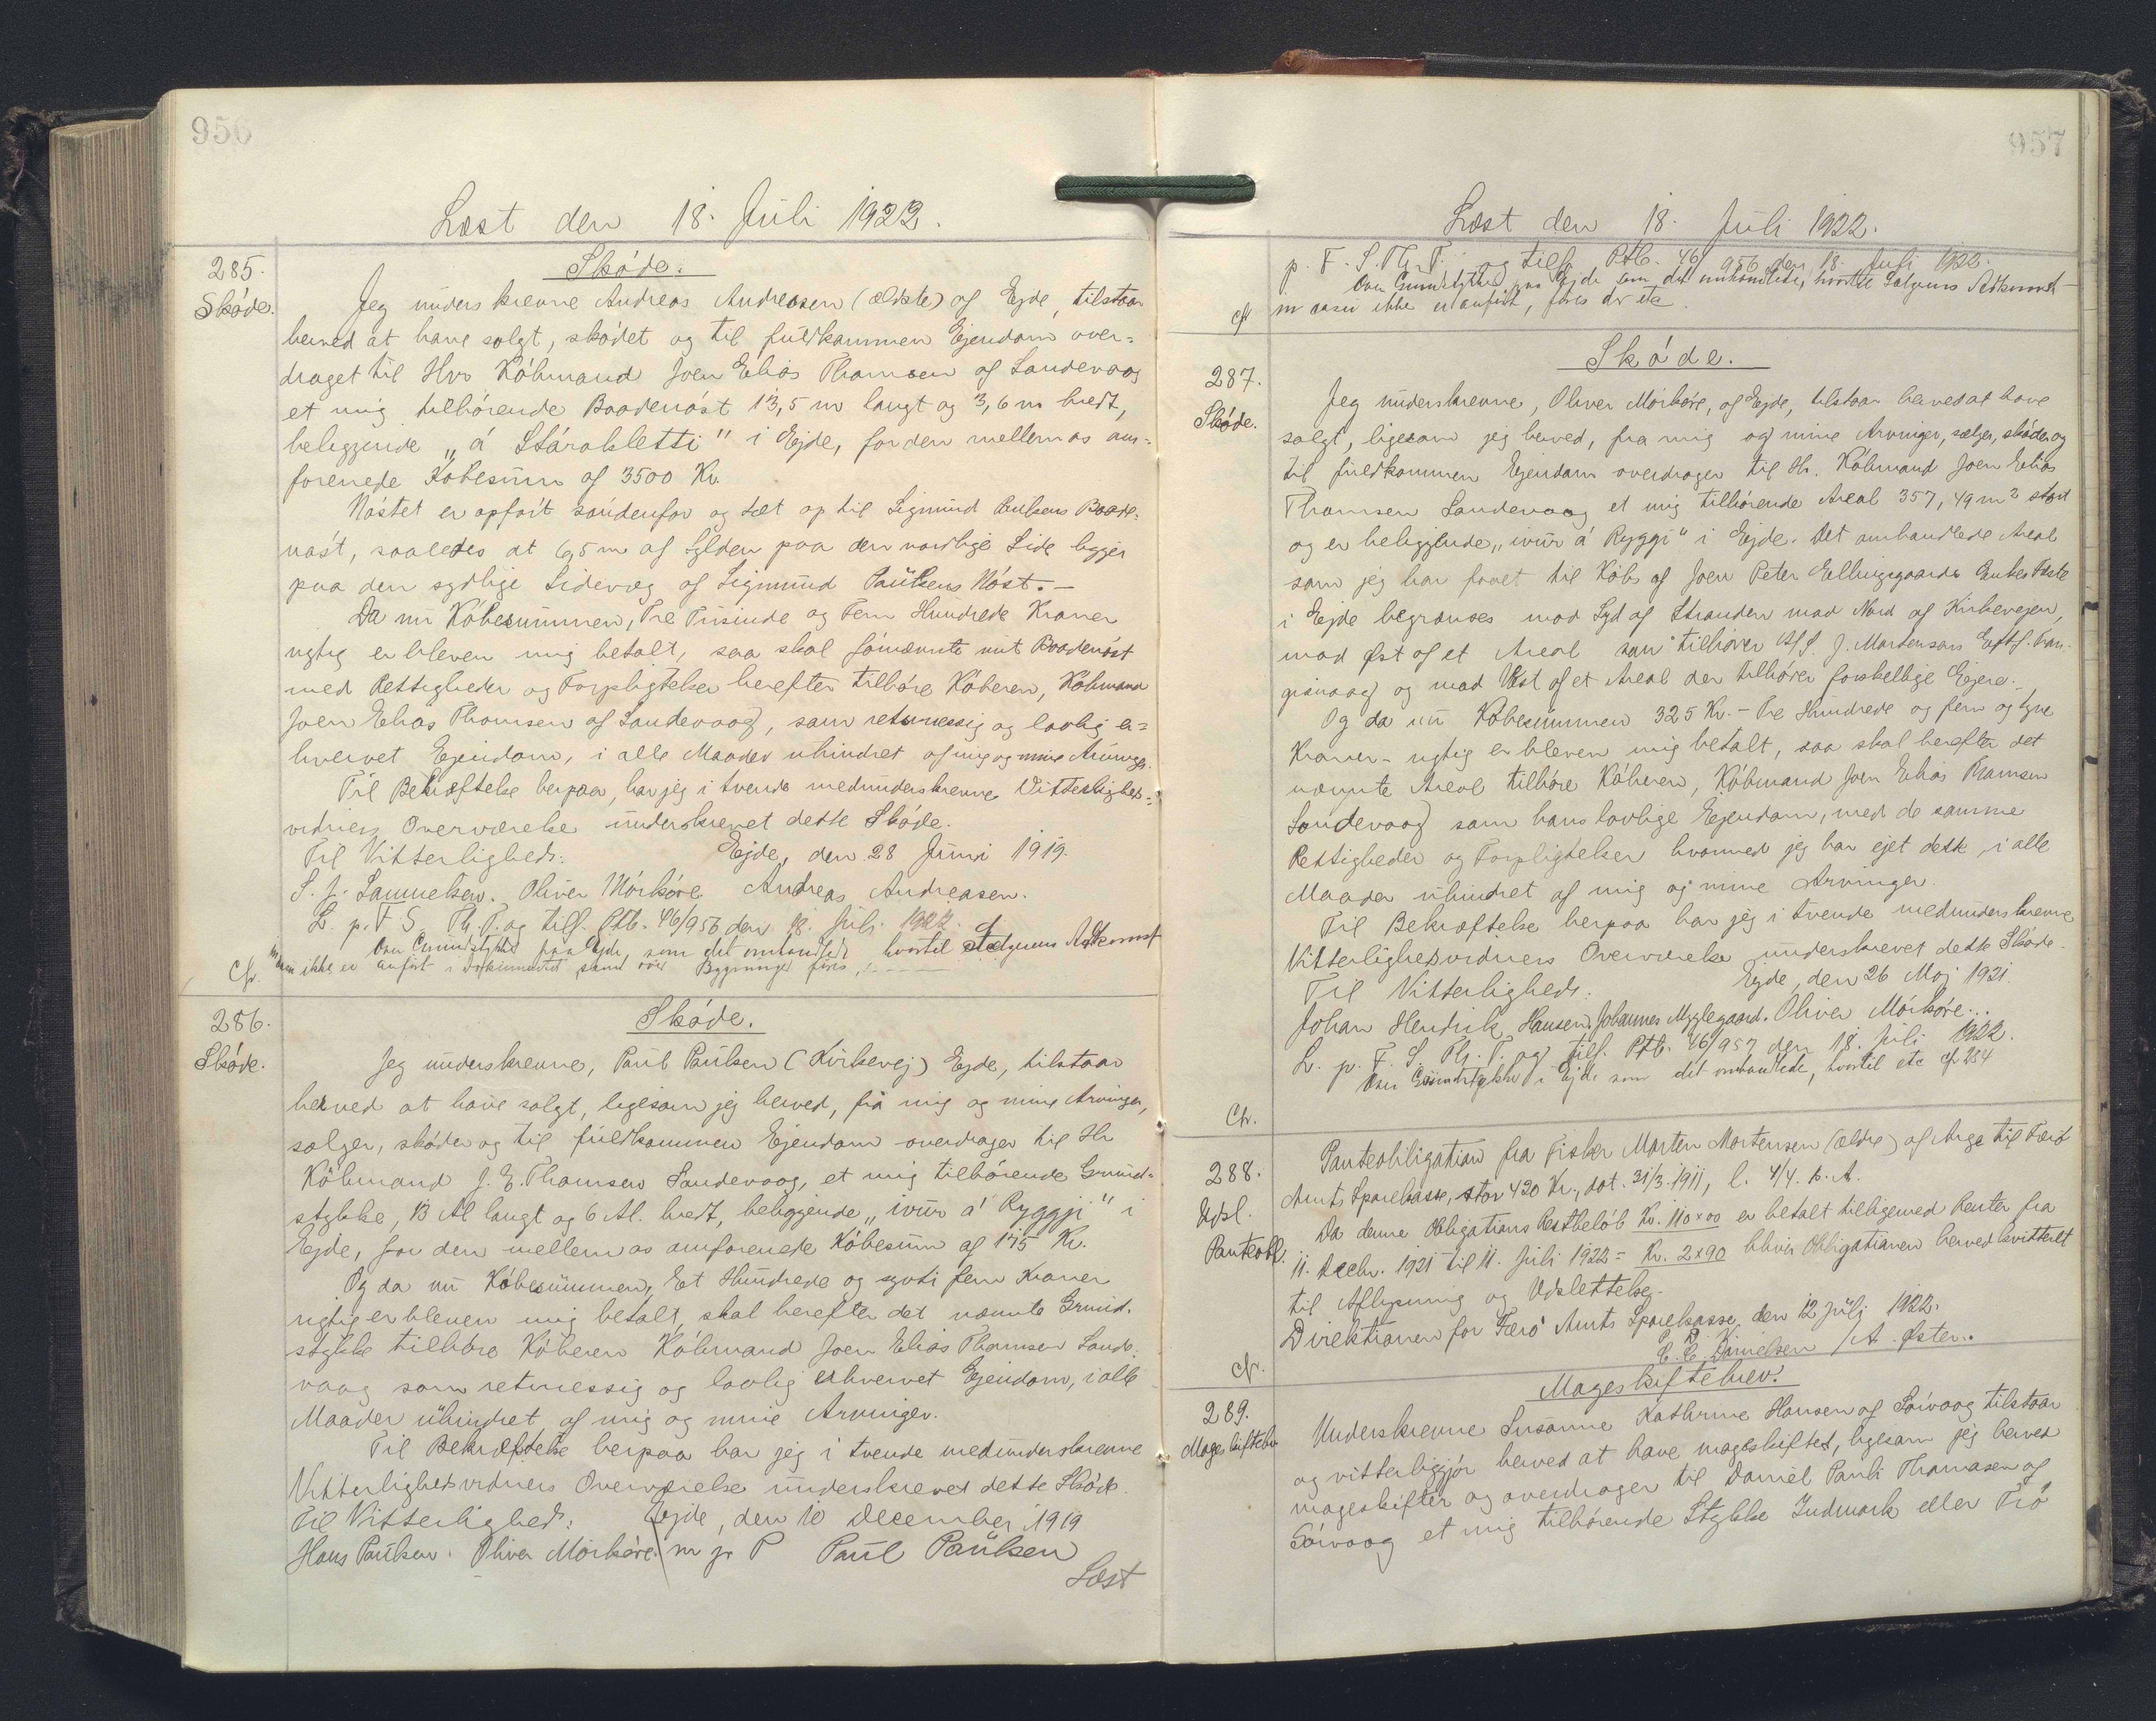 956
Læst den 18. Juli 1922.
285.
Skøde.
Skøde.
Jeg underskrevne Andreas Andreasen (ældste) af Ejde, tilstaar
herved at have solgt, skødet og til fuldkommen Ejendom over-
draget til Hrr Købmand Joen Elias Thomsen af Sandevaag
et mig tilhørende Baadenøst 13,5 m langt og 3,6 m bredt,
beliggende „á Stárakletti" i Ejde, for den mellem os om-
forenede Købesum af 3500 Kr.
Nøstet er opført søndenfor og tæt op til Sigmund Poulsens Baade-
nøst, saaledes at 6,5 m af Sylden paa den nordlige Side ligger
paa den sydlige Sidevæg af Sigmund Paulsens Nøst.-
Da nu Købesummen, Tre Tusinde og Fem Hundrede Kroner
rigtig er bleven mig betalt, saa skal fornævnte mit Baadenøst
med Rettigheder og Forpligtelser herefter tilhøre Køberen, Købmand
Joen Elias Thomsen af Sandevaag, som retmessig og lovlig er-
hvervet Ejendom, i alle Maader uhindret af mig og mine Arvinger.
Til Bekræftelse herpaa, har jeg i tvende medunderskrevne Vitterligheds-
vidners Overværelse underskrevet dette Skøde.
Til Vitterlighed: Ejde, den 28 Juni 1919.
S. J. Samuelsen. Oliver Mørkøre. Andreas Andreasen.
L. p. F. S. Th. T. og tilf. Ptb. 46/956 den 18. Juli 1922.
Over Grundstykket paa Ejde, som det omhandlede hvortil Sælgerens Adkomst
ikke er anført i Dokumentet samt over Bygninger føres
Cfr.
286.
Skøde.
Skøde.
Jeg underskrevne, Paul Paulsen (Kirkevej) Ejde, tilstaar
herved at have solgt, ligesom jeg herved, fra mig og mine Arvinger,
sælger, skøder og til fuldkommen Ejendom overdrager til Hr
Købmand J. E. Thomsen Sandevaag, et mig tilhørende Grund-
stykke, 13 Al langt og 6 Al. bredt, beliggende „ivur á Ryggji" i
Ejde, for den mellem os omforenede Købesum af 175 Kr.
Og da nu Købesummen, Et Hundrede og syvti fem Kroner
rigtig er bleven mig betalt, skal herefter det nævnte Grund-
stykke tilhøre Køberen Købmand Joen Elias Thomsen Sande-
vaag som retmessig og lovlig erhvervet Ejendom, i alle
Maader uhindret af mig og mine Arvinger.
Til Bekræftelse herpaa har jeg i tvende medunderskrevne
Vitterlighedsvidners Overværelse underskrevet dette Skøde.
Til Vitterlighed: Ejde, den 10 December 1919
Hans Paulsen. Oliver Mørkøre. m p P Paul Paulsen
Læst
957
Læst den 18. Juli 1922.
p. F. S. Th. T. og tilf. Ptb. 46/956 den 18. Juli 1922.
Over Grundstykket paa Ejde som det omhandlede, hvortil Sælgerens Adkomst
ikke er anført, føres etc
cfr
287.
Skøde.
Skøde.
Jeg underskrevne, Oliver Mørkøre, af Ejde, tilstaar herved at have
solgt, ligesom jeg herved, fra mig og mine Arvinger, sælger, skøder og
til fuldkommen Ejendom overdrager til Hr. Købmand Joen Elias
Thomsen Sandevaag et mig tilhørende Areal 357,49 m² stort
og er beliggende „ivur á Ryggi" i Ejde. Det omhandlede Areal
som jeg har faaet til Køb af Joen Peter Ellingsgaards Enkes Fæste
i Ejde begrænses mod Syd af Stranden mod Nord af Kirkevejen,
mod Øst af et Areal som tilhører A/S. J. Mortensens Eftf. Tran-
gisvaag og mod Vest af et Areal der tilhører forskellige Ejere.-
Og da nu Købesummen 325 Kr.- Tre Hundrede og fem og tyve
Kroner- rigtig er bleven mig betalt, saa skal herefter det
nævnte Areal tilhøre Køberen, Købmand Joen Elias Thomsen
Sandevaag som hans lovlige Ejendom, med de samme
Rettigheder og Forpligtelser hvormed jeg har ejet dette, i alle
Maader uhindret af mig og mine Arvinger.
Til Bekræftelse herpaa har jeg i tvende medunderskrevne
Vitterlighedsvidners Overværelse underskrevet dette Skøde.
Til Vitterlighed: Ejde, den 26 Maj 1921.
Johan Hendrik Hansen. Johannes Myglegaard. Oliver Mørkøre...
L. p. F. S. Th. T. og tilf. Ptb. 46/957 den 18. Juli 1922.
Over Grundstykke i Ejde som det omhandlede, hvortil etc cfr 284
Cfr.
288.
Udsl.
Panteobl.
Panteobligation fra Fisker Morten Mortensen (ældre) af Arge til Færø
Amts Sparekasse, stor 420 Kr., dat. 31/3. 1911, l. 4/4. s. A.
Da denne Obligations Restbeløb Kr. 110×00 er betalt tilligemed Renter fra
11. Decbr. 1921 til 11. Juli 1922 = Kr. 2×90 bliver Obligationen herved kvitteret
til Aflysning og Udslettelse.
Direktionen for Færø Amts Sparekasse, den 12 Juli 1922.
C. C. Danielsen / A. Øster..
cfr.
289.
Mageskiftebr
Mageskiftebrev.
Underskrevne Susanne Kathrine Hansen af Sørvaag tilstaar
og vitterliggjør herved at have mageskiftet, ligesom jeg herved
mageskifter og overdrager til Daniel Pauli Thomasen af
Sørvaag et mig tilhørende Stykke Indmark eller Trø